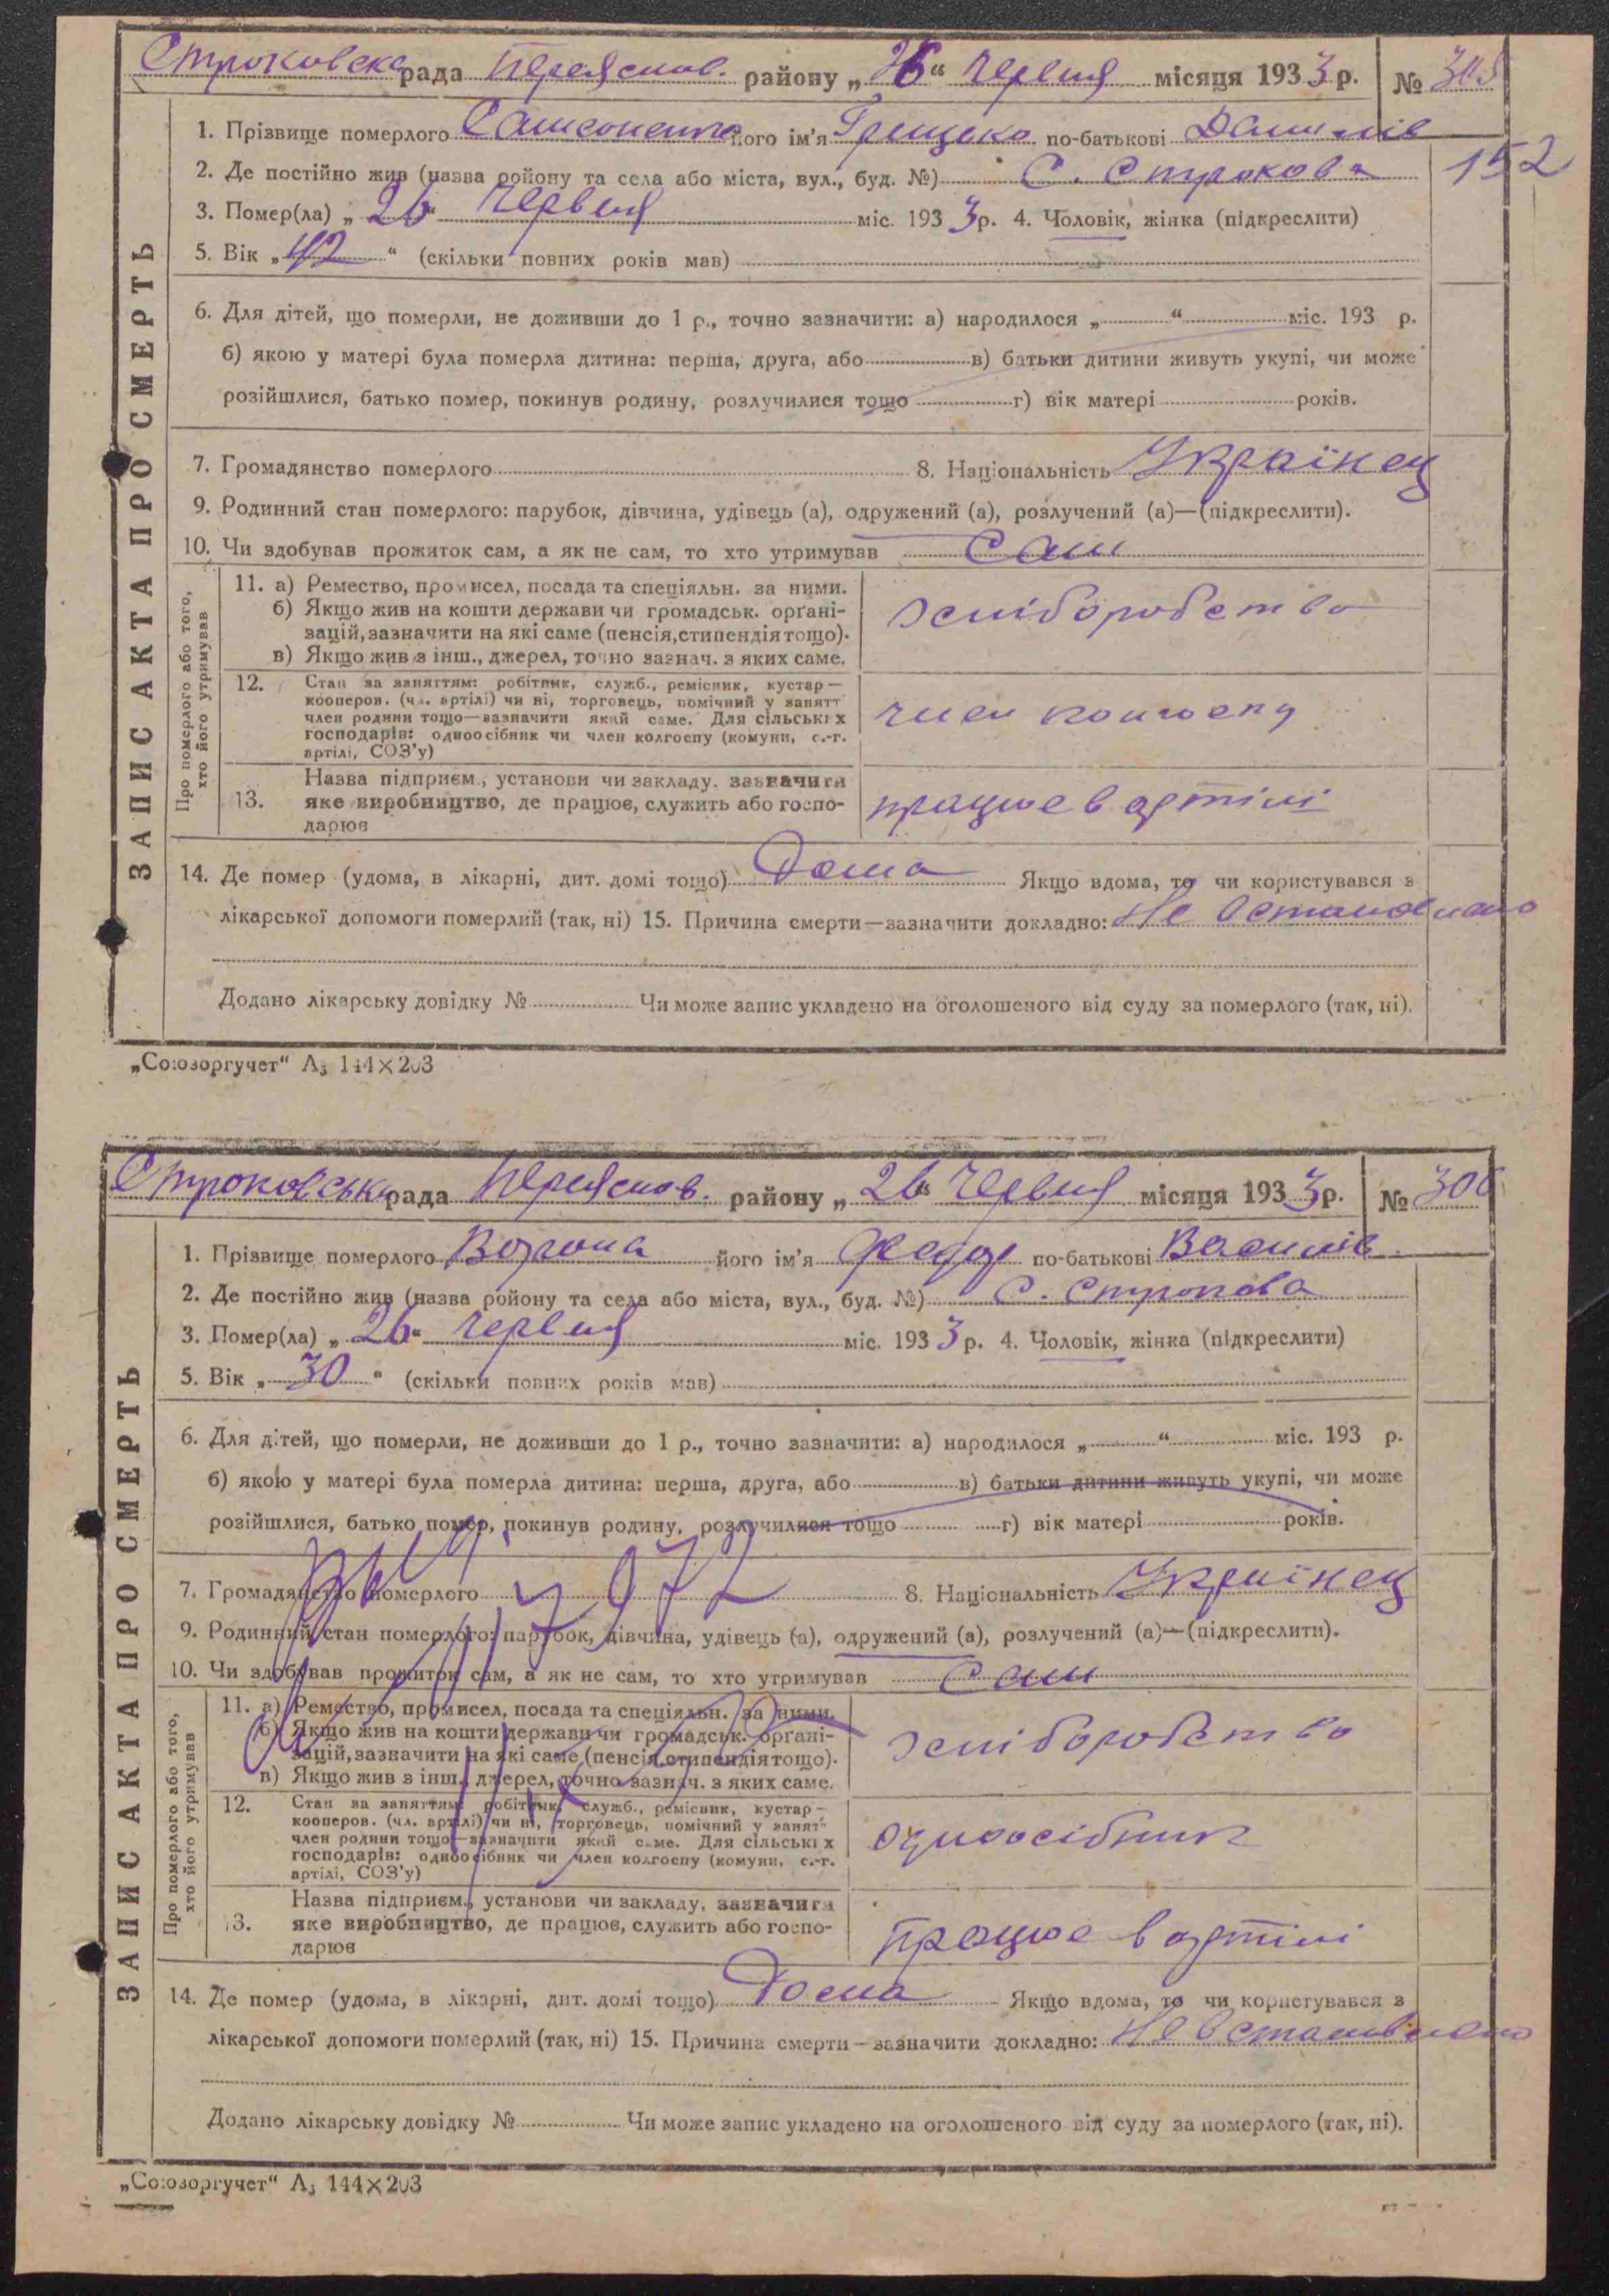 Строковска рада Переяслов. району „26“ Червня місяця 1933 р. № 305
1. Прізвище померлого Самсоненко його ім'я Грицько по-батькові Данилів
152
2. Де постійно жив (назва ройону та села або міста, вул., буд. №) С. Строкова
3. Помер(ла) „26“ Червня міс. 1933 р. 4. Чоловік, жінка (підкреслити)
5. Вік „42“ (скільки повних років мав)
6. Для дітей, що померли, не доживши до 1 р., точно зазначити: а) народилося „ “ міс. 193 р.
б) якою у матері була померла дитина: перша, друга, або в) батьки дитини живуть укупі, чи може
розійшлися, батько помер, покинув родину, розлучилися тощо г) вік матері років.
7. Громадянство померлого 8. Національність Українец
9. Родинний стан померлого: парубок, дівчина, удівець (а), одружений (а), розлучений (а)—(підкреслити).
10. Чи здобував прожиток сам, а як не сам, то хто утримував Сам
ЗАПИС АКТА ПРО СМЕРТЬ
Про померлого або того,
хто його утримував
11. а) Ремество, промисел, посада та спеціяльн. за ними.
б) Якщо жив на кошти держави чи громадськ. орґані-
зацій, зазначити на які саме (пенсія, стипендія тощо).
в) Якщо жив з інш., джерел, точно зазнач. з яких саме.
хліборобство
12. Стан за заняттям: робітник, служб., ремісник, кустар—
кооперов. (чл. артілі) чи ні, торговець, помічний у занятт
член родини тощо—зазначити який саме. Для сільських
господарів: одноосібник чи член колгоспу (комуни, с.-г.
артілі, СОЗ'у)
член колгоспу
13. Назва підприєм., установи чи закладу, зазначити
яке виробництво, де працює, служить або госпо-
дарює
працює в артілі
14. Де помер (удома, в лікарні, дит. домі тощо) Дома Якщо вдома, то чи користувався з
лікарської допомоги померлий (так, ні) 15. Причина смерти—зазначити докладно: Не встановлено
Додано лікарську довідку № Чи може запис укладено на оголошеного від суду за померлого (так, ні).
„Союзоргучет“ А₅ 144×203
Строковська рада Переяслов. району „26“ Червня місяця 1933 р. № 306
1. Прізвище померлого Ворона його ім'я Федор по-батькові Василів
2. Де постійно жив (назва ройону та села або міста, вул., буд. №) С. Строкова
3. Помер(ла) „26“ Червня міс. 1933 р. 4. Чоловік, жінка (підкреслити)
5. Вік „30“ (скільки повних років мав)
6. Для дітей, що померли, не доживши до 1 р., точно зазначити: а) народилося „ “ міс. 193 р.
б) якою у матері була померла дитина: перша, друга, або в) батьки дитини живуть укупі, чи може
розійшлися, батько помер, покинув родину, розлучилися тощо г) вік матері років.
7. Громадянство померлого 8. Національність Українец
9. Родинний стан померлого: парубок, дівчина, удівець (а), одружений (а), розлучений (а)—(підкреслити).
10. Чи здобував прожиток сам, а як не сам, то хто утримував Сам
ЗАПИС АКТА ПРО СМЕРТЬ
Про померлого або того,
хто його утримував
11. а) Ремество, промисел, посада та спеціяльн. за ними.
б) Якщо жив на кошти держави чи громадськ. орґані-
зацій, зазначити на які саме (пенсія, стипендія тощо).
в) Якщо жив з інш., джерел, точно зазнач. з яких саме.
хліборобство
12. Стан за заняттям: робітник, служб., ремісник, кустар—
кооперов. (чл. артілі) чи ні, торговець, помічний у занят
член родини тощо—зазначити який саме. Для сільських
господарів: одноосібник чи член колгоспу (комуни, с.-г.
артілі, СОЗ'у)
одноосібник
13. Назва підприєм., установи чи закладу, зазначити
яке виробництво, де працює, служить або госпо-
дарює
працює в артілі
14. Де помер (удома, в лікарні, дит. домі тощо) Дома Якщо вдома, то чи користувався з
лікарської допомоги померлий (так, ні) 15. Причина смерти—зазначити докладно: Не встановлено
Додано лікарську довідку № Чи може запис укладено на оголошеного від суду за померлого (так, ні).
„Союзоргучет“ А₅ 144×203